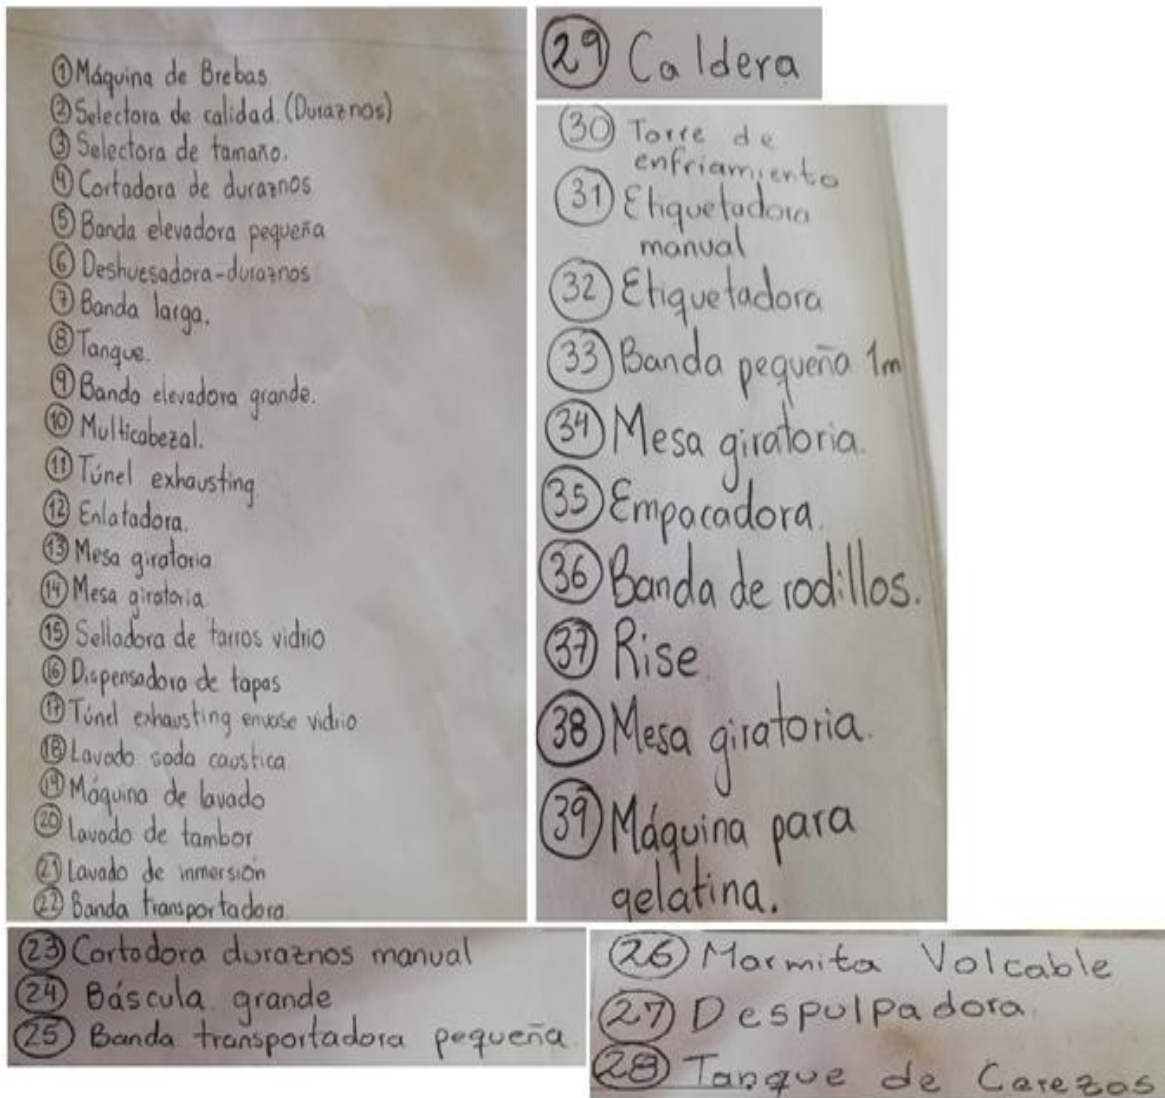 ① Máquina de Brebas
② Selectora de calidad. (Duraznos)
③ Selectora de tamaño.
④ Cortadora de duraznos
⑤ Banda elevadora pequeña
⑥ Deshuesadora-duraznos
⑦ Banda larga.
⑧ Tanque.
⑨ Banda elevadora grande.
⑩ Multicabezal.
⑪ Túnel exhausting
⑫ Enlatadora.
⑬ Mesa giratoria
⑭ Mesa giratoria
⑮ Selladora de tarros vidrio
⑯ Dispensadora de tapas
⑰ Túnel exhausting envase vidrio
⑱ Lavado soda caustica
⑲ Máquina de lavado
⑳ Lavado de tambor
㉑ Lavado de inmersión
㉒ Banda transportadora
㉓ Cortadora duraznos manual
㉔ Báscula grande
㉕ Banda transportadora pequeña
㉖ Marmita Volcable
㉗ Despulpadora
㉘ Tanque de Cerezas
㉙ Caldera
㉚ Torre de
enfriamiento
㉛ Etiquetadora
manual
㉜ Etiquetadora
㉝ Banda pequeña 1m
㉞ Mesa giratoria.
㉟ Empacadora.
㊱ Banda de rodillos.
㊲ Rise
㊳ Mesa giratoria.
㊴ Máquina para
gelatina.